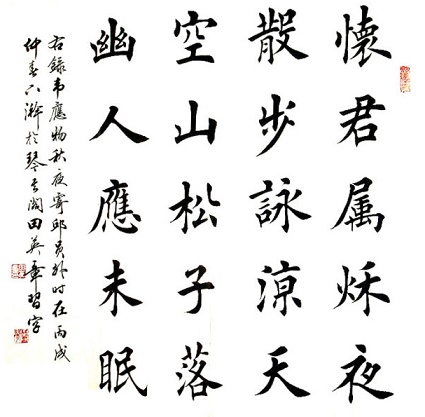 懷君属秌夜
散步詠涼天
空山松子落
幽人應未眠
右錄韦應物秋夜寄邱員外时在丙戌
仲春下澣於琴閣田英章習字